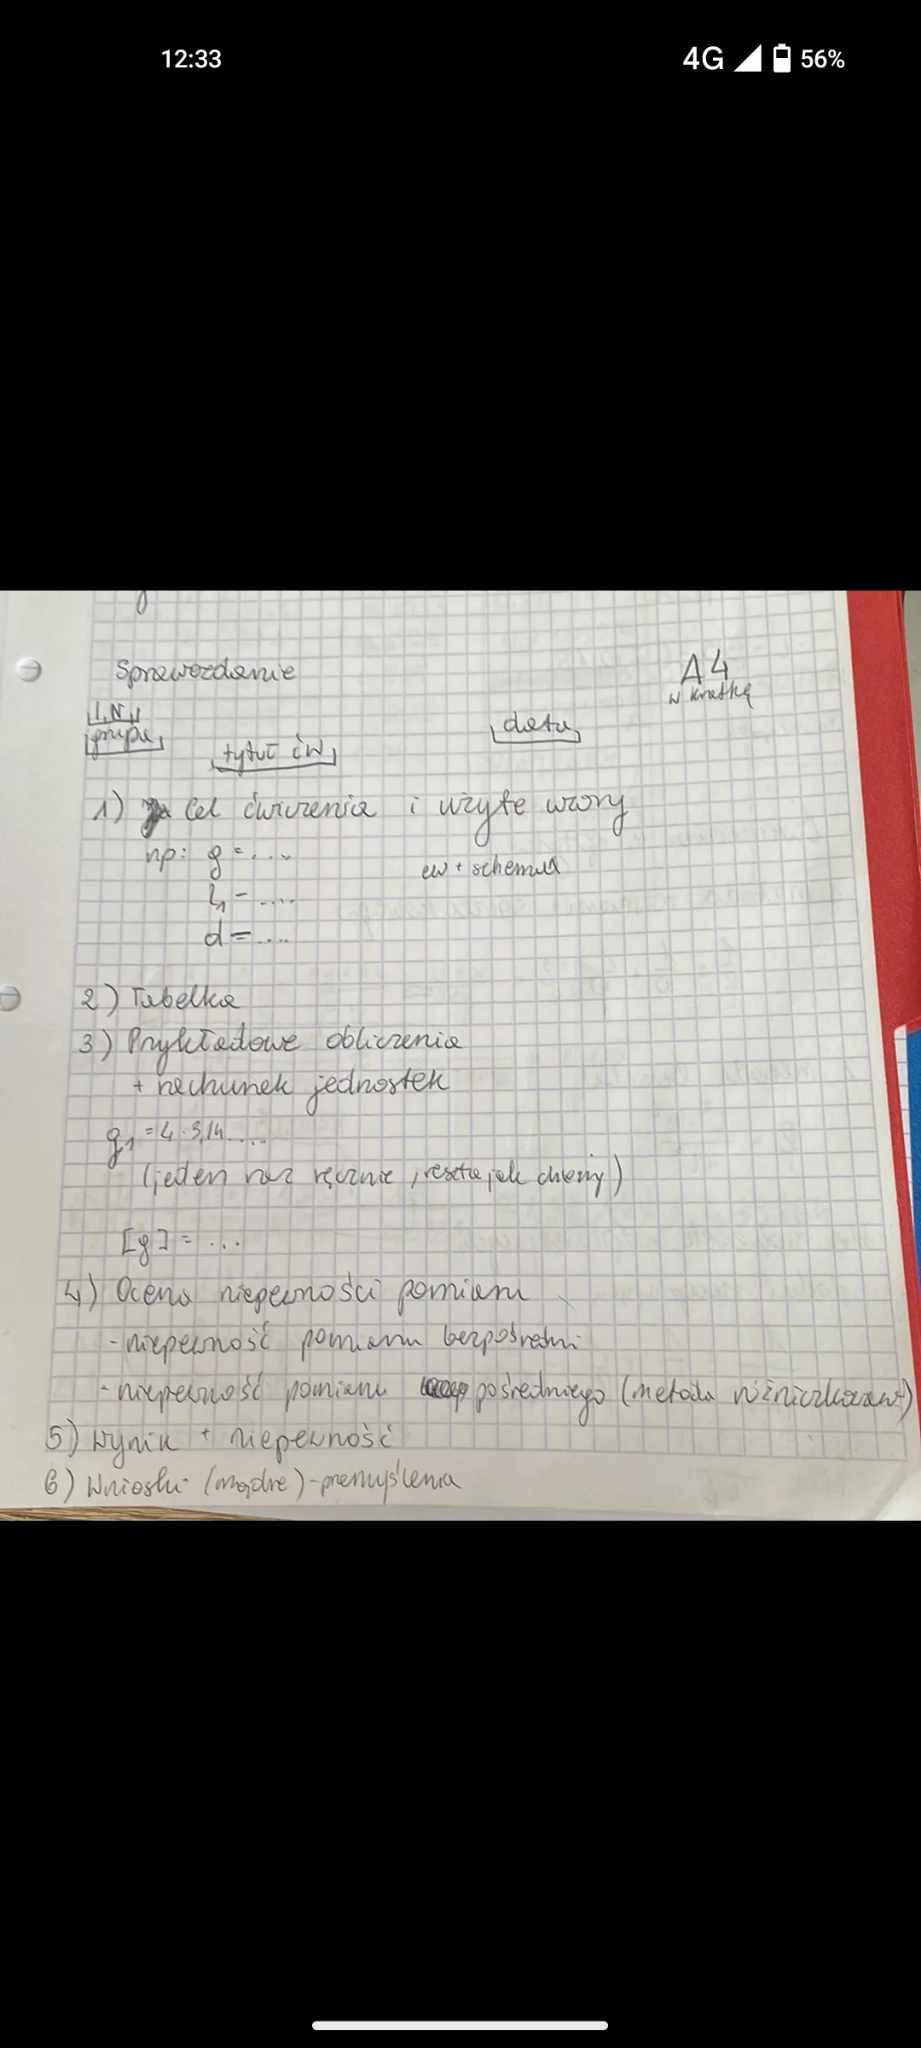 12:33 4G 56%
Sprawozdanie
A4
w kratkę
I, N
grupa
data
tytuł ćw
1) Cel ćwiczenia i użyte wzory
np: g = ....
ew + schemat
l₁ = ....
d = ....
2) Tabelka
3) Przykładowe obliczenia
+ rachunek jednostek
g₁ = 4 · 3,14 ....
(jeden raz ręcznie, reszta jak chcemy)
[g] = ...
4) Ocena niepewności pomiaru
- niepewność pomiaru bezpośredni
- niepewność pomiaru pośredniego (metoda różniczkowa)
5) Wynik + niepewność
6) Wnioski (mądre) - przemyślenia